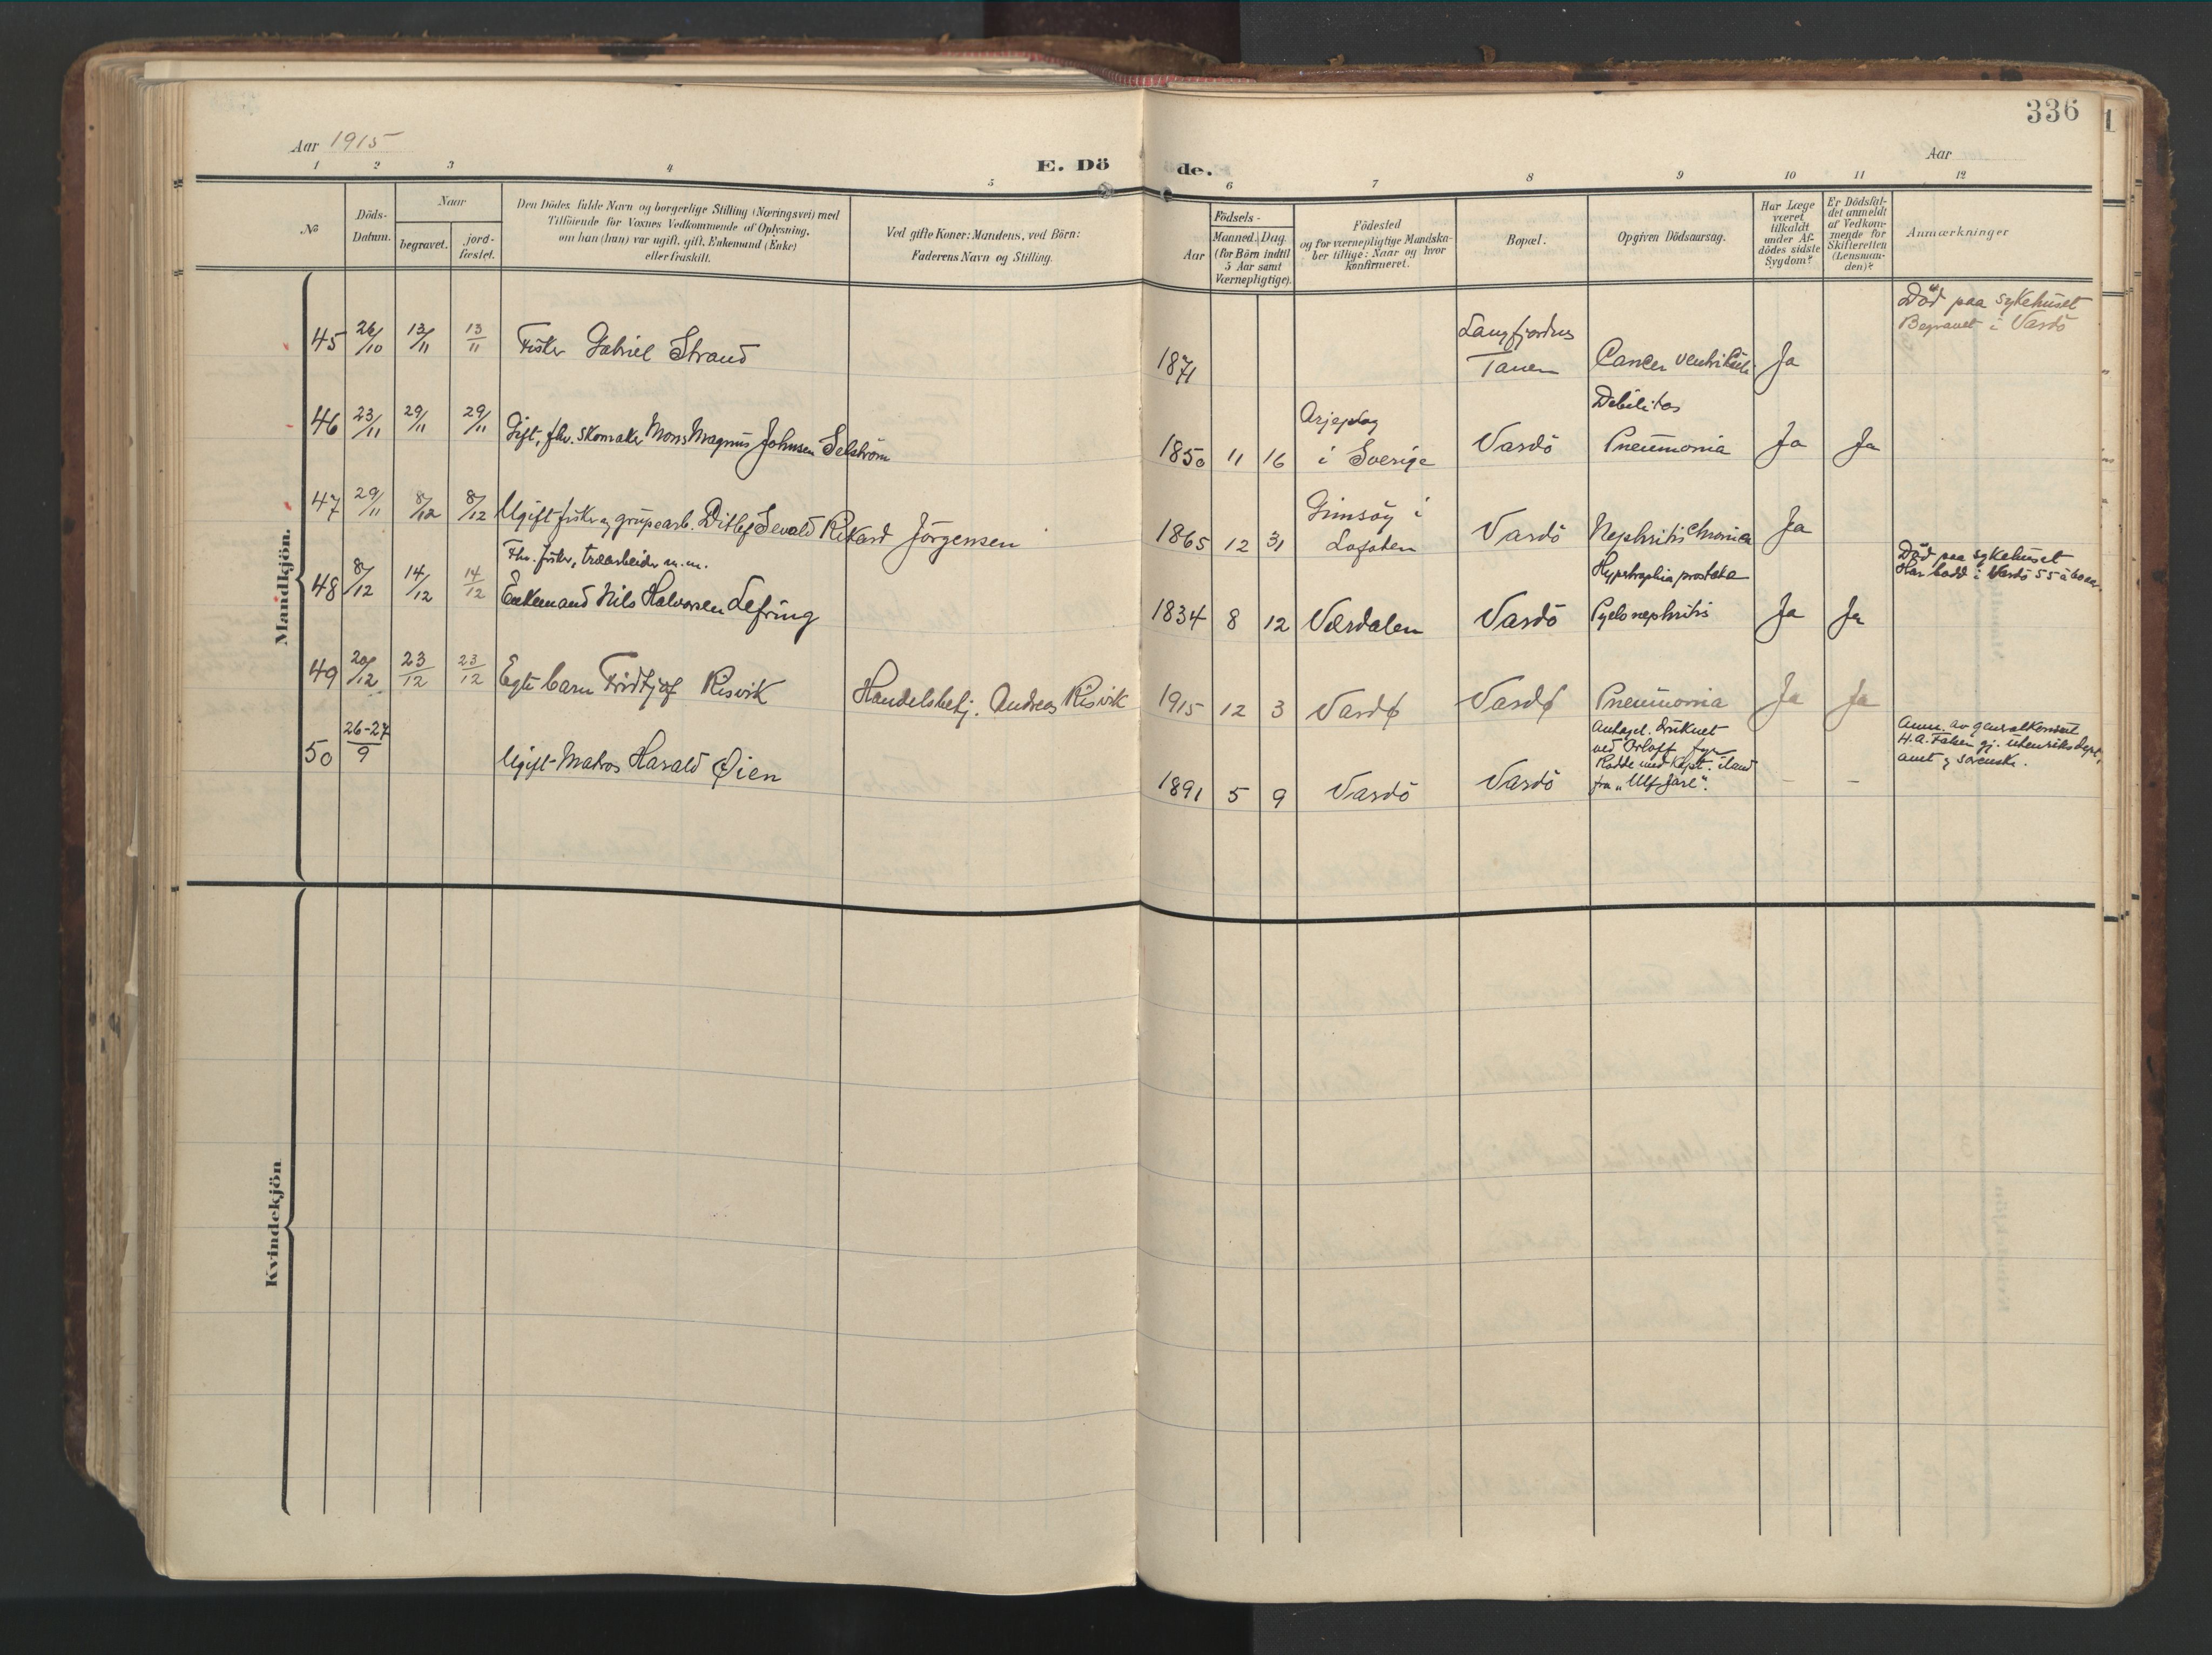 336
Aar 1915
Aar
E. Dö
de.
1 2 3 4 5 6 7 8 9 10 11 12
No
Döds-
Datum.
Naar
begravet.
jord-
fæstet.
Den Dödes fulde Navn og borgerlige Stilling (Næringsvei) med
Tilföiende for Voxnes Vedkommende af Oplysning,
om han (hun) var ugift, gift, Enkemand (Enke)
eller fraskilt.
Ved gifte Koner: Mandens, ved Börn:
Faderens Navn og Stilling.
Födsels-
Aar
Maaned. Dag.
(for Börn indtil
5 Aar samt
Værnepligtige).
Födested
og for værnepligtige Mandska-
ber tillige: Naar og hvor
konfirmeret.
Bopæl.
Opgiven Dödsaarsag.
Har Læge
været
tilkaldt
under Af-
dödes sidste
Sygdom?
Er Dödsfal-
det anmeldt
af Vedkom-
mende for
Skifteretten
(Lensman-
den)?
Anmærkninger
Mandkjön.
45 26/10 13/11 13/11 Fisker Gabriel Strand
1871
Langfjordnes
Tanen
Cancer ventriculi
Ja
Död paa sykehuset
Begravet i Vardö
46 23/11 29/11 29/11 Gift, fhv. skomaker Mons Magnus Johnsen Selström
1850 11 16
Arjeplog
i Sverige
Vardö
Debilitas
Pneumonia
Ja Ja
47 29/11 8/12 8/12 Ugift fisker og grubearb. Ditlef Sevald Rikard Jörgensen
1865 12 31
Gimsöy i
Lofoten
Vardö
Nephritis Chronica
Ja
48 8/12 14/12 14/12
Fhv. fisker, træarbeider m.m.
Enkemand Nils Halvorsen Lefring
1834 8 12 Værdalen Vardö
Hypertrophia prostata
Pyelonephritis
Ja Ja
Död paa sykehuset
Har bodd i Vardö 55 à 60 aar.
49 20/12 23/12 23/12 Egte barn Fridtjof Risvik
Handelsbetj. Andreas Risvik
1915 12 3 Vardø Vardø Pneumonia Ja Ja
50 26-27/9
Ugift Matros Harald Øien
1891 5 9 Vardö Vardö
Antagel. druknet
ved Orloff fyr
Rodde med kapt. iland
fra "Ulf Jarl".
– –
Anm. av generalkonsul
H. A. Falsen gj. utenriksdept,
amt og sorensk.
Kvindekjön